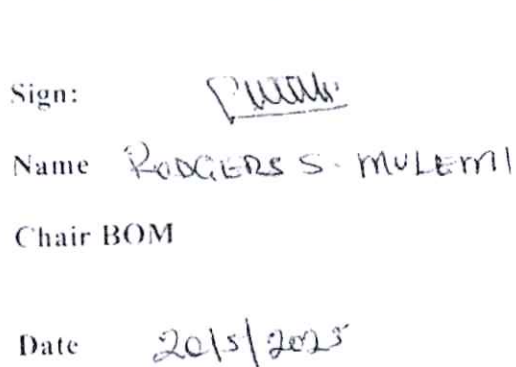 Sign:
Name RODGERS S. MULEMI
Chair BOM
Date 20/5/2025